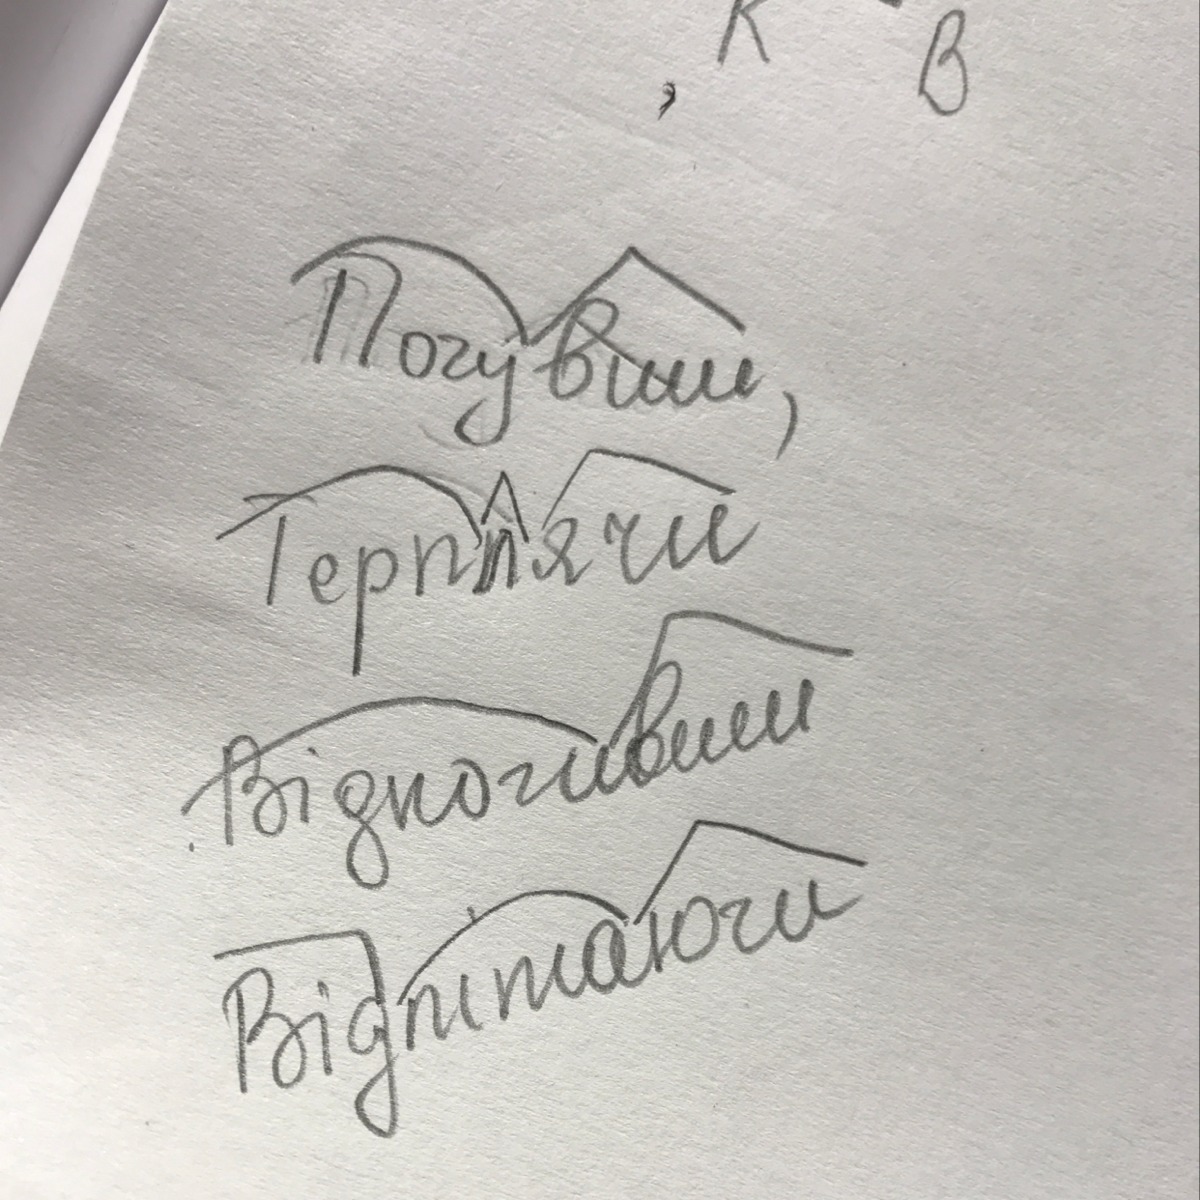 , К В
Почувши,
Терплячи
Відпочивши
Відлітаючи